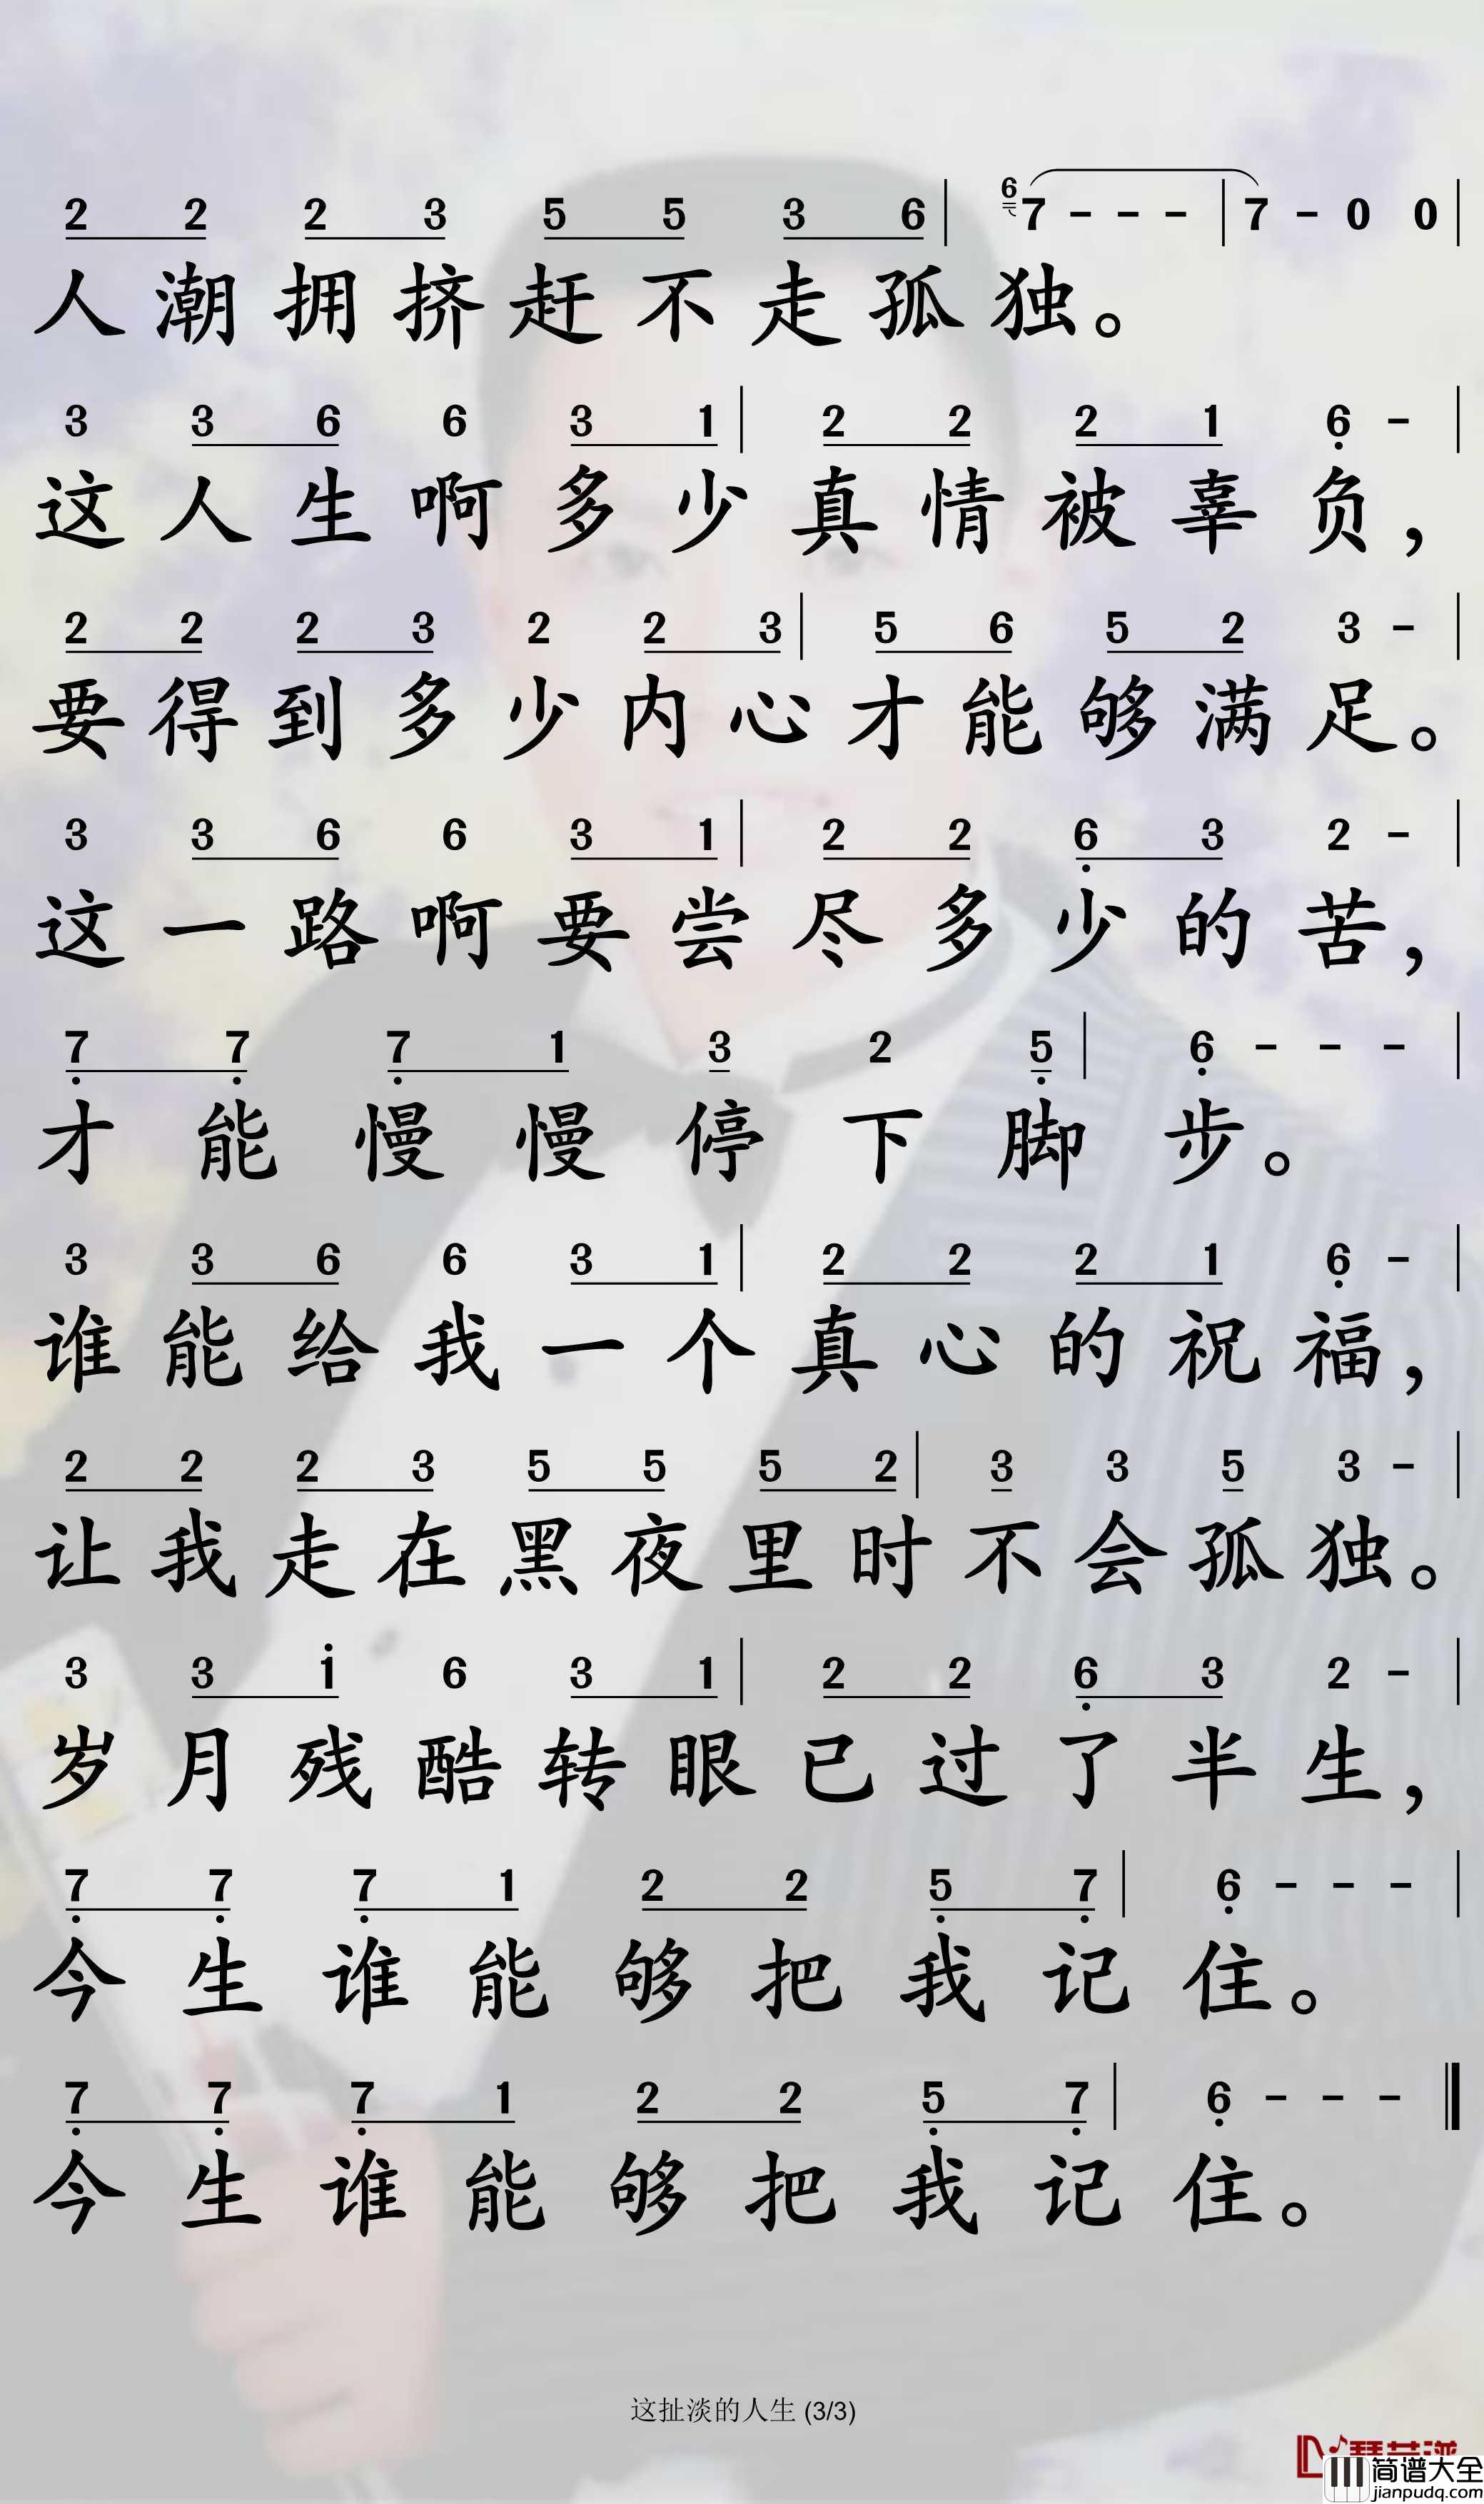 2 2 2 3 5 5 3 6 | 6 7 - - - | 7 - 0 0 |
人潮拥挤赶不走孤独。
3 3 6 6 3 1 | 2 2 2 1 6 - |
这人生啊多少真情被辜负，
2 2 2 3 2 2 3 | 5 6 5 2 3 - |
要得到多少内心才能够满足。
3 3 6 6 3 1 | 2 2 6 3 2 - |
这一路啊要尝尽多少的苦，
7 7 7 1 3 2 5 | 6 - - - |
才能慢慢停下脚步。
3 3 6 6 3 1 | 2 2 2 1 6 - |
谁能给我一个真心的祝福，
2 2 2 3 5 5 5 2 | 3 3 5 3 - |
让我走在黑夜里时不会孤独。
3 3 1 6 3 1 | 2 2 6 3 2 - |
岁月残酷转眼已过了半生，
7 7 7 1 2 2 5 7 | 6 - - - |
今生谁能够把我记住。
7 7 7 1 2 2 5 7 | 6 - - - ‖
今生谁能够把我记住。
这扯淡的人生 (3/3)
简谱大全
jianpudq.com